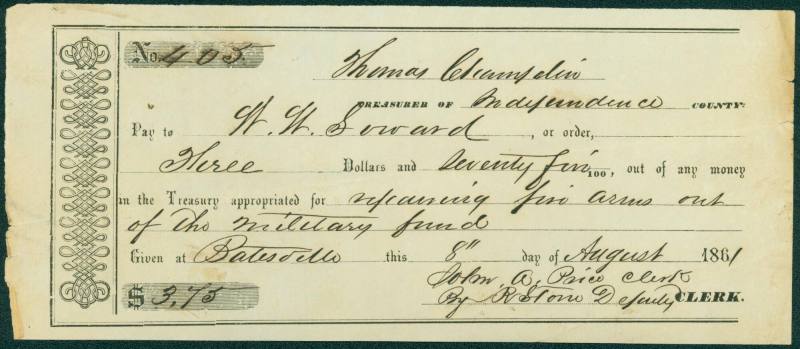 No 405.
Thomas Champlin
TREASURER OF Independence COUNTY:
Pay to W. W. Soward, or order,
Three Dollars and Seventy five/100, out of any money
in the Treasury appropriated for repairing fire arms out
of the military fund
Given at Batesville this 8" day of August 1861
John. A. Price Clerk
$ 3,75 By R Stone Deputy CLERK.